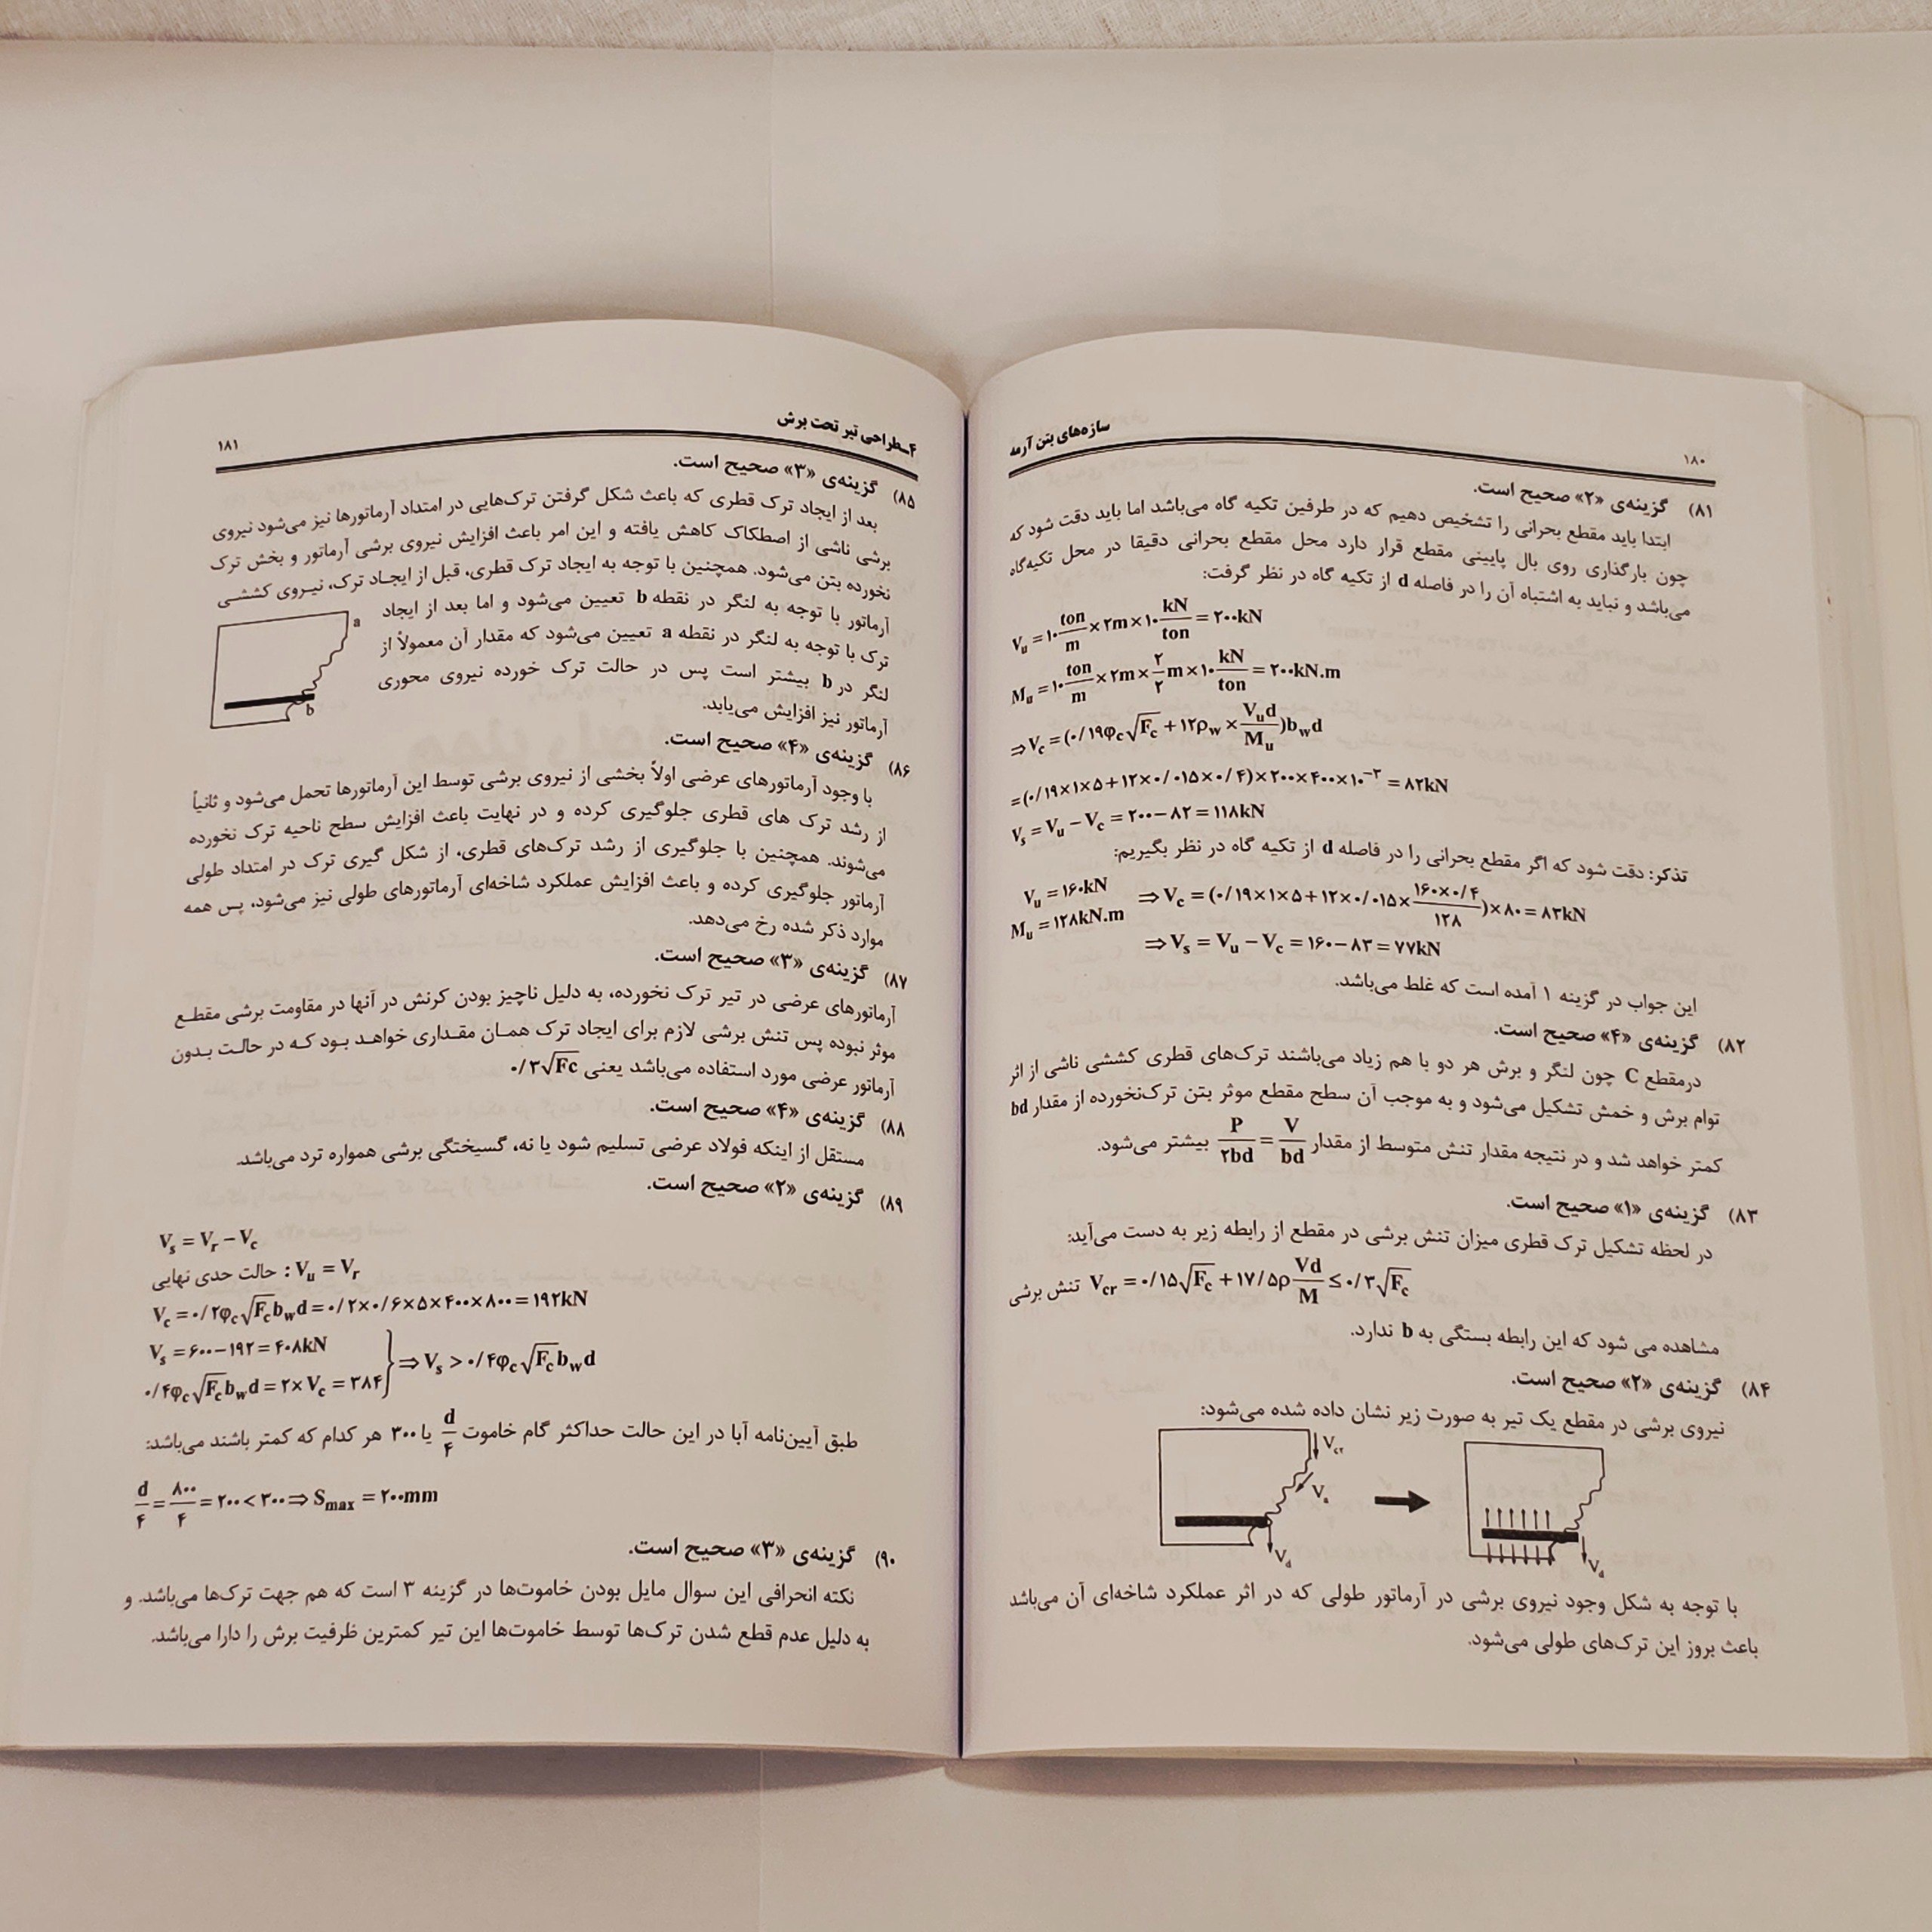 ۱۸۰
سازه‌های بتن آرمه
۸۱) گزینه‌ی «۲» صحیح است.
ابتدا باید مقطع بحرانی را تشخیص دهیم که در طرفین تکیه گاه می‌باشد اما باید دقت شود که
چون بارگذاری روی بال پایینی مقطع قرار دارد محل مقطع بحرانی دقیقا در محل تکیه‌گاه
می‌باشد و نباید به اشتباه آن را در فاصله d از تکیه گاه در نظر گرفت:
V_u = ۱۰ ton/m × ۲m × ۱۰ kN/ton = ۲۰۰kN
M_u = ۱۰ ton/m × ۲m × ۲/۲ m × ۱۰ kN/ton = ۲۰۰kN.m
⇒ V_c = (۰/۱۹φ_c√F_c + ۱۲ρ_w × V_u d/M_u) b_w d
= (۰/۱۹×۱×۵+۱۲×۰/۰۱۵×۰/۴)×۲۰۰×۴۰۰×۱۰^-۳ = ۸۲kN
V_s = V_u − V_c = ۲۰۰−۸۲ = ۱۱۸kN
تذکر: دقت شود که اگر مقطع بحرانی را در فاصله d از تکیه گاه در نظر بگیریم:
V_u = ۱۶۰kN
M_u = ۱۲۸kN.m ⇒ V_c = (۰/۱۹×۱×۵+۱۲×۰/۰۱۵× ۱۶۰×۰/۴/۱۲۸)×۸۰ = ۸۳kN
⇒ V_s = V_u − V_c = ۱۶۰−۸۳ = ۷۷kN
این جواب در گزینه ۱ آمده است که غلط می‌باشد.
۸۲) گزینه‌ی «۴» صحیح است.
درمقطع C چون لنگر و برش هر دو با هم زیاد می‌باشند ترک‌های قطری کششی ناشی از اثر
توام برش و خمش تشکیل می‌شود و به موجب آن سطح مقطع موثر بتن ترک‌نخورده از مقدار bd
کمتر خواهد شد و در نتیجه مقدار تنش متوسط از مقدار P/۲bd = V/bd بیشتر می‌شود.
۸۳) گزینه‌ی «۱» صحیح است.
در لحظه تشکیل ترک قطری میزان تنش برشی در مقطع از رابطه زیر به دست می‌آید:
تنش برشی V_cr = ۰/۱۵√F_c + ۱۷/۵ρ Vd/M ≤ ۰/۳√F_c
مشاهده می شود که این رابطه بستگی به b ندارد.
۸۴) گزینه‌ی «۲» صحیح است.
نیروی برشی در مقطع یک تیر به صورت زیر نشان داده شده می‌شود:
V_cr
V_a
V_d
V_d
با توجه به شکل وجود نیروی برشی در آرماتور طولی که در اثر عملکرد شاخه‌ای آن می‌باشد
باعث بروز این ترک‌های طولی می‌شود.
۴ـطراحی تیر تحت برش
۱۸۱
۸۵) گزینه‌ی «۳» صحیح است.
بعد از ایجاد ترک قطری که باعث شکل گرفتن ترک‌هایی در امتداد آرماتورها نیز می‌شود نیروی
برشی ناشی از اصطکاک کاهش یافته و این امر باعث افزایش نیروی برشی آرماتور و بخش ترک
نخورده بتن می‌شود. همچنین با توجه به ایجاد ترک قطری، قبل از ایجـاد ترک، نیـروی کششـی
آرماتور با توجه به لنگر در نقطه b تعیین می‌شود و اما بعد از ایجاد
ترک با توجه به لنگر در نقطه a تعیین می‌شود که مقدار آن معمولاً از
لنگر در b بیشتر است پس در حالت ترک خورده نیروی محوری
آرماتور نیز افزایش می‌یابد.
a
b
۸۶) گزینه‌ی «۴» صحیح است.
با وجود آرماتورهای عرضی اولاً بخشی از نیروی برشی توسط این آرماتورها تحمل می‌شود و ثانیاً
از رشد ترک های قطری جلوگیری کرده و در نهایت باعث افزایش سطح ناحیه ترک نخورده
می‌شوند. همچنین با جلوگیری از رشد ترک‌های قطری، از شکل گیری ترک در امتداد طولی
آرماتور جلوگیری کرده و باعث افزایش عملکرد شاخه‌ای آرماتورهای طولی نیز می‌شود، پس همه
موارد ذکر شده رخ می‌دهد.
۸۷) گزینه‌ی «۳» صحیح است.
آرماتورهای عرضی در تیر ترک نخورده، به دلیل ناچیز بودن کرنش در آنها در مقاومت برشی مقطـع
موثر نبوده پس تنش برشی لازم برای ایجاد ترک همـان مقـداری خواهـد بـود کـه در حالـت بـدون
آرماتور عرضی مورد استفاده می‌باشد یعنی ۰/۳√Fc
۸۸) گزینه‌ی «۴» صحیح است.
مستقل از اینکه فولاد عرضی تسلیم شود یا نه، گسیختگی برشی همواره ترد می‌باشد.
۸۹) گزینه‌ی «۲» صحیح است.
V_s = V_r − V_c
حالت حدی نهایی : V_u = V_r
V_c = ۰/۲φ_c√F_c b_w d = ۰/۲×۰/۶×۵×۴۰۰×۸۰۰ = ۱۹۲kN
V_s = ۶۰۰−۱۹۲ = ۴۰۸kN
۰/۴φ_c√F_c b_w d = ۲×V_c = ۳۸۴ } ⇒ V_s > ۰/۴φ_c√F_c b_w d
طبق آیین‌نامه آبا در این حالت حداکثر گام خاموت d/۴ یا ۳۰۰ هر کدام که کمتر باشند می‌باشد:
d/۴ = ۸۰۰/۴ = ۲۰۰ < ۳۰۰ ⇒ S_max = ۲۰۰mm
۹۰) گزینه‌ی «۳» صحیح است.
نکته انحرافی این سوال مایل بودن خاموت‌ها در گزینه ۳ است که هم جهت ترک‌ها می‌باشد. و
به دلیل عدم قطع شدن ترک‌ها توسط خاموت‌ها این تیر کمترین ظرفیت برش را دارا می‌باشد.